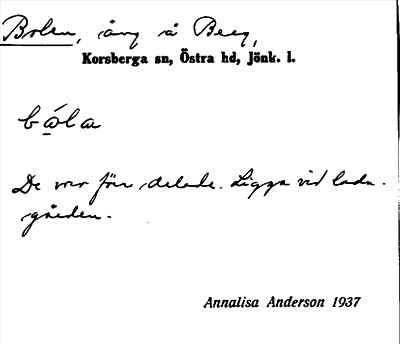 Bolen, äng å Berg,
Korsberga sn, Östra hd, Jönk. l.
bo̲´la
De voro förr delade. Ligga vid ladu-
gården.
Annalisa Anderson 1937